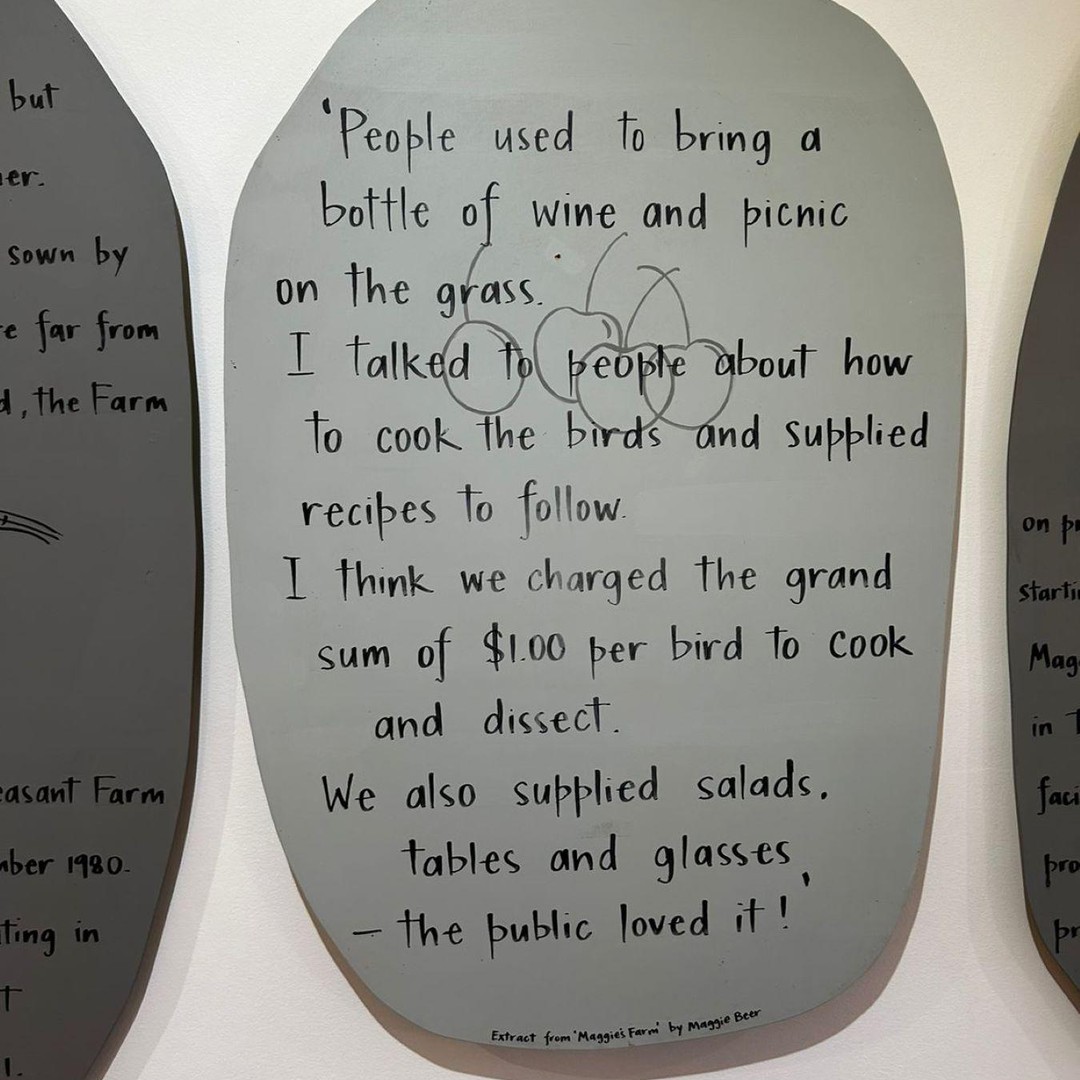 but
sown by
far from
, the Farm
Farm
1980.
in
'People used to bring a
bottle of wine and picnic
on the grass.
I talked to people about how
to cook the birds and supplied
recipes to follow.
I think we charged the grand
sum of $1.00 per bird to cook
and dissect.
We also supplied salads.
tables and glasses
– the public loved it!'
Extract from 'Maggie's Farm' by Maggie Beer
on
in